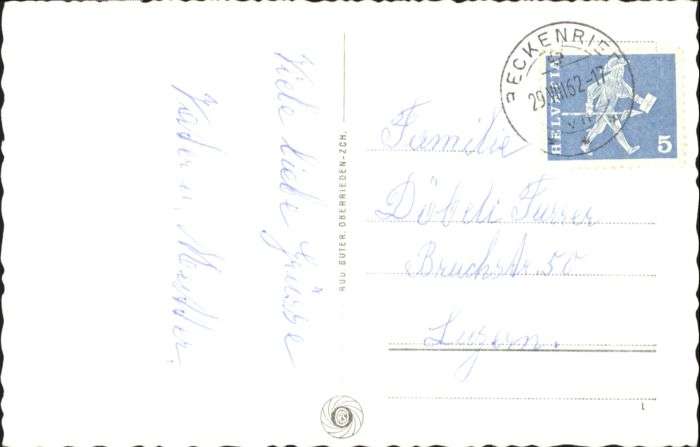 Viele liebe Grüsse
Vater u. Mutter.
RUD. SUTER, OBERRIEDEN-ZCH.
BECKENRIED
29.VIII.62-17
HELVETIA
5
Familie
Döbeli Furrer
Bruchstr. 50
Luzern.
1